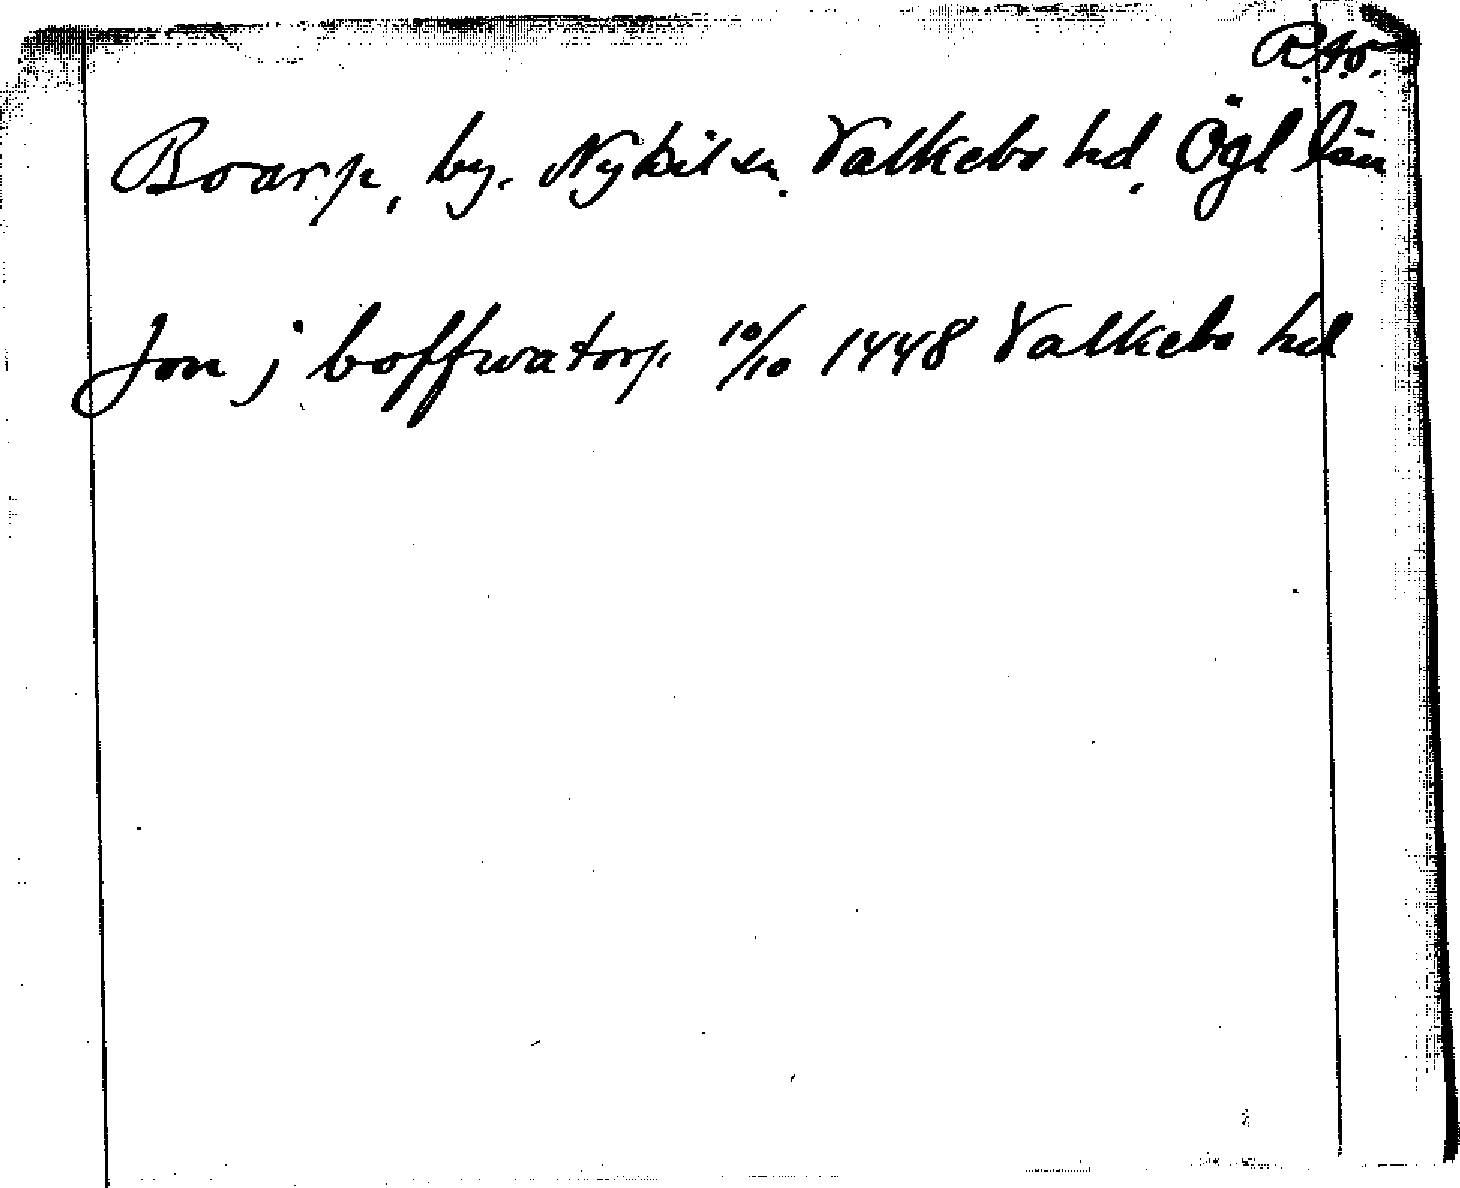 Boarp, by. Nykil sn. Valkebo hd, Ögl län
Jon j boffwatorp 10/10 1448 Valkebo hd